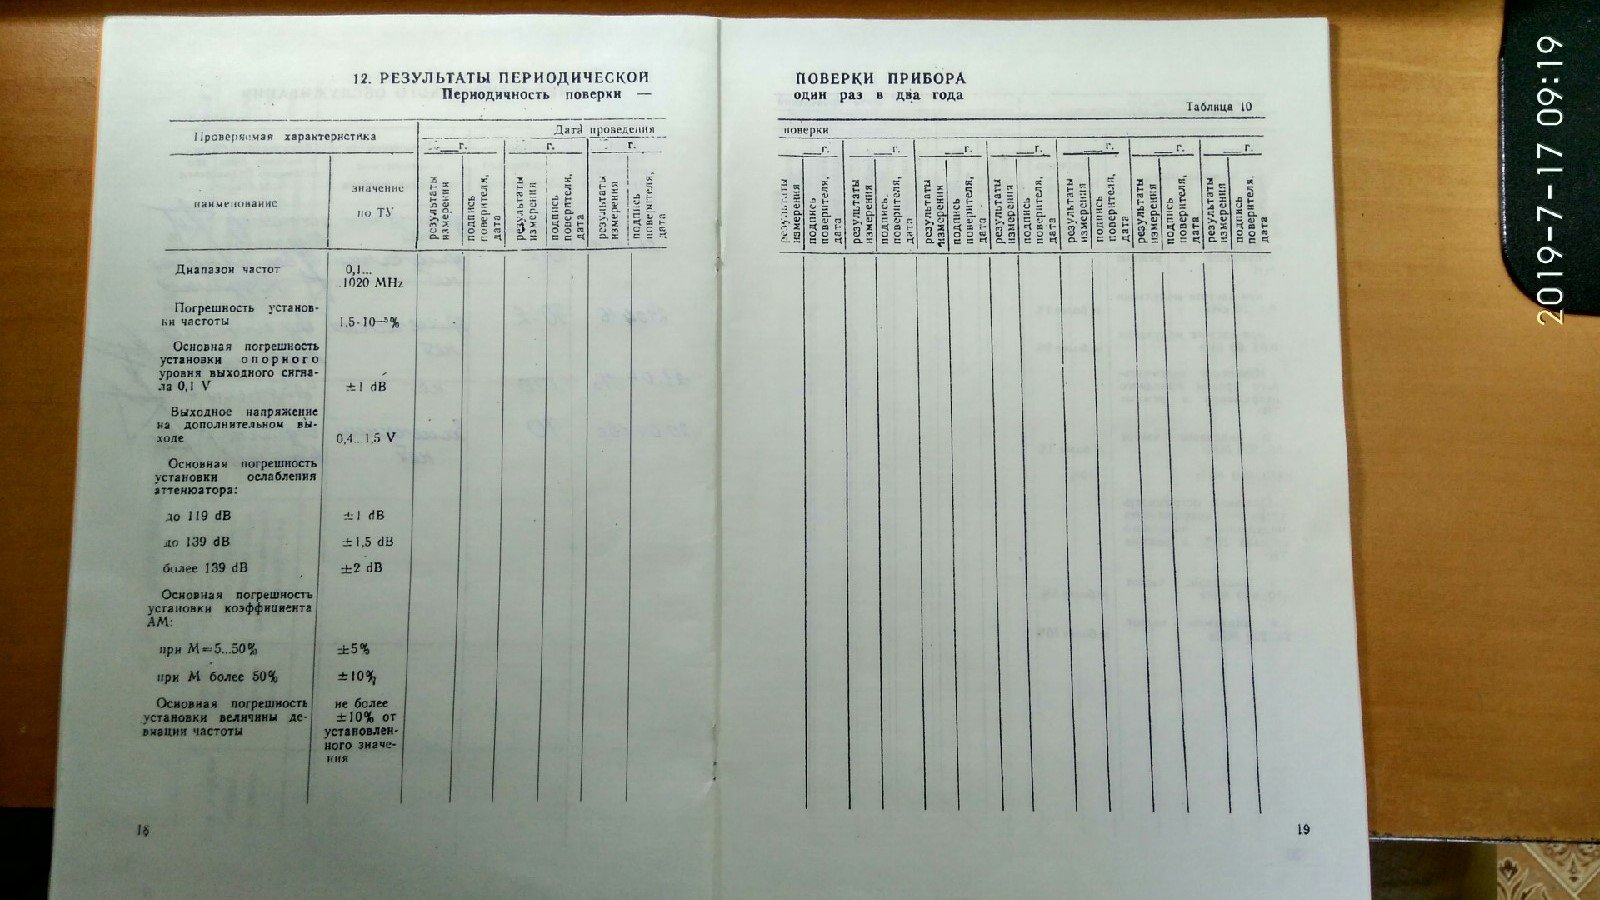 12. РЕЗУЛЬТАТЫ ПЕРИОДИЧЕСКОЙ
Периодичность поверки —
Проверяемая характеристика
Дата проведения
г.
г.
г.
наименование
значение
по ТУ
результаты
измерения
подпись
поверителя,
дата
результаты
измерения
подпись
поверителя,
дата
результаты
измерения
подпись
поверителя,
дата
Диапазон частот
0,1...
..1020 MHz
Погрешность установ-
ки частоты
1,5·10—⁵%
Основная погрешность
установки опорного
уровня выходного сигна-
ла 0,1 V
±1 dB
Выходное напряжение
на дополнительном вы-
ходе
0,4...1,5 V
Основная погрешность
установки ослабления
аттенюатора:
до 119 dB
±1 dB
до 139 dB
±1,5 dB
более 139 dB
±2 dB
Основная погрешность
установки коэффициента
АМ:
при М=5...50%
±5%
при М более 50%
±10%
Основная погрешность
установки величины де-
виации частоты
не более
±10% от
установлен-
ного значе-
ния
18
ПОВЕРКИ ПРИБОРА
один раз в два года
Таблица 10
поверки
г.
г.
г.
г.
г.
г.
г.
результаты
измерения
подпись
поверителя,
дата
результаты
измерения
подпись
поверителя,
дата
результаты
измерения
подпись
поверителя,
дата
результаты
измерения
подпись
поверителя,
дата
результаты
измерения
подпись
поверителя,
дата
результаты
измерения
подпись
поверителя,
дата
результаты
измерения
подпись
поверителя.
дата
19
2019-7-17 09:19